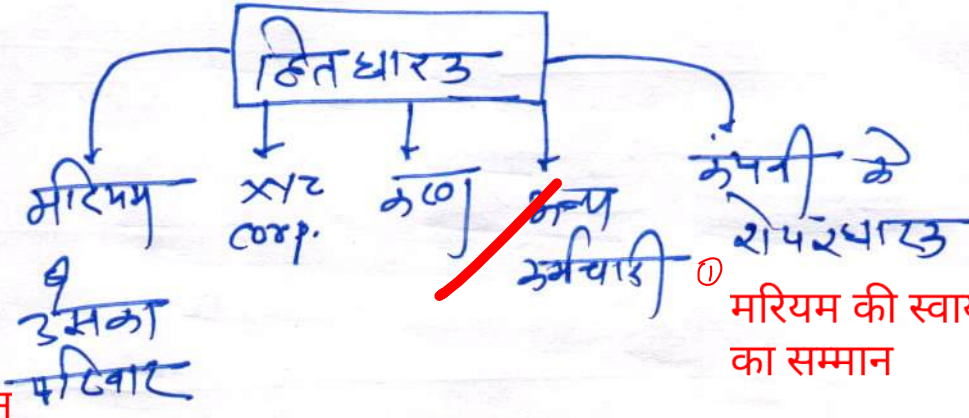 हितधारक
मरियम
व
उसका
परिवार
XYZ
corp.
कण
अन्य
कर्मचारी
कंपनी के
शेयरधारक
①
मरियम की स्वाय
का सम्मान